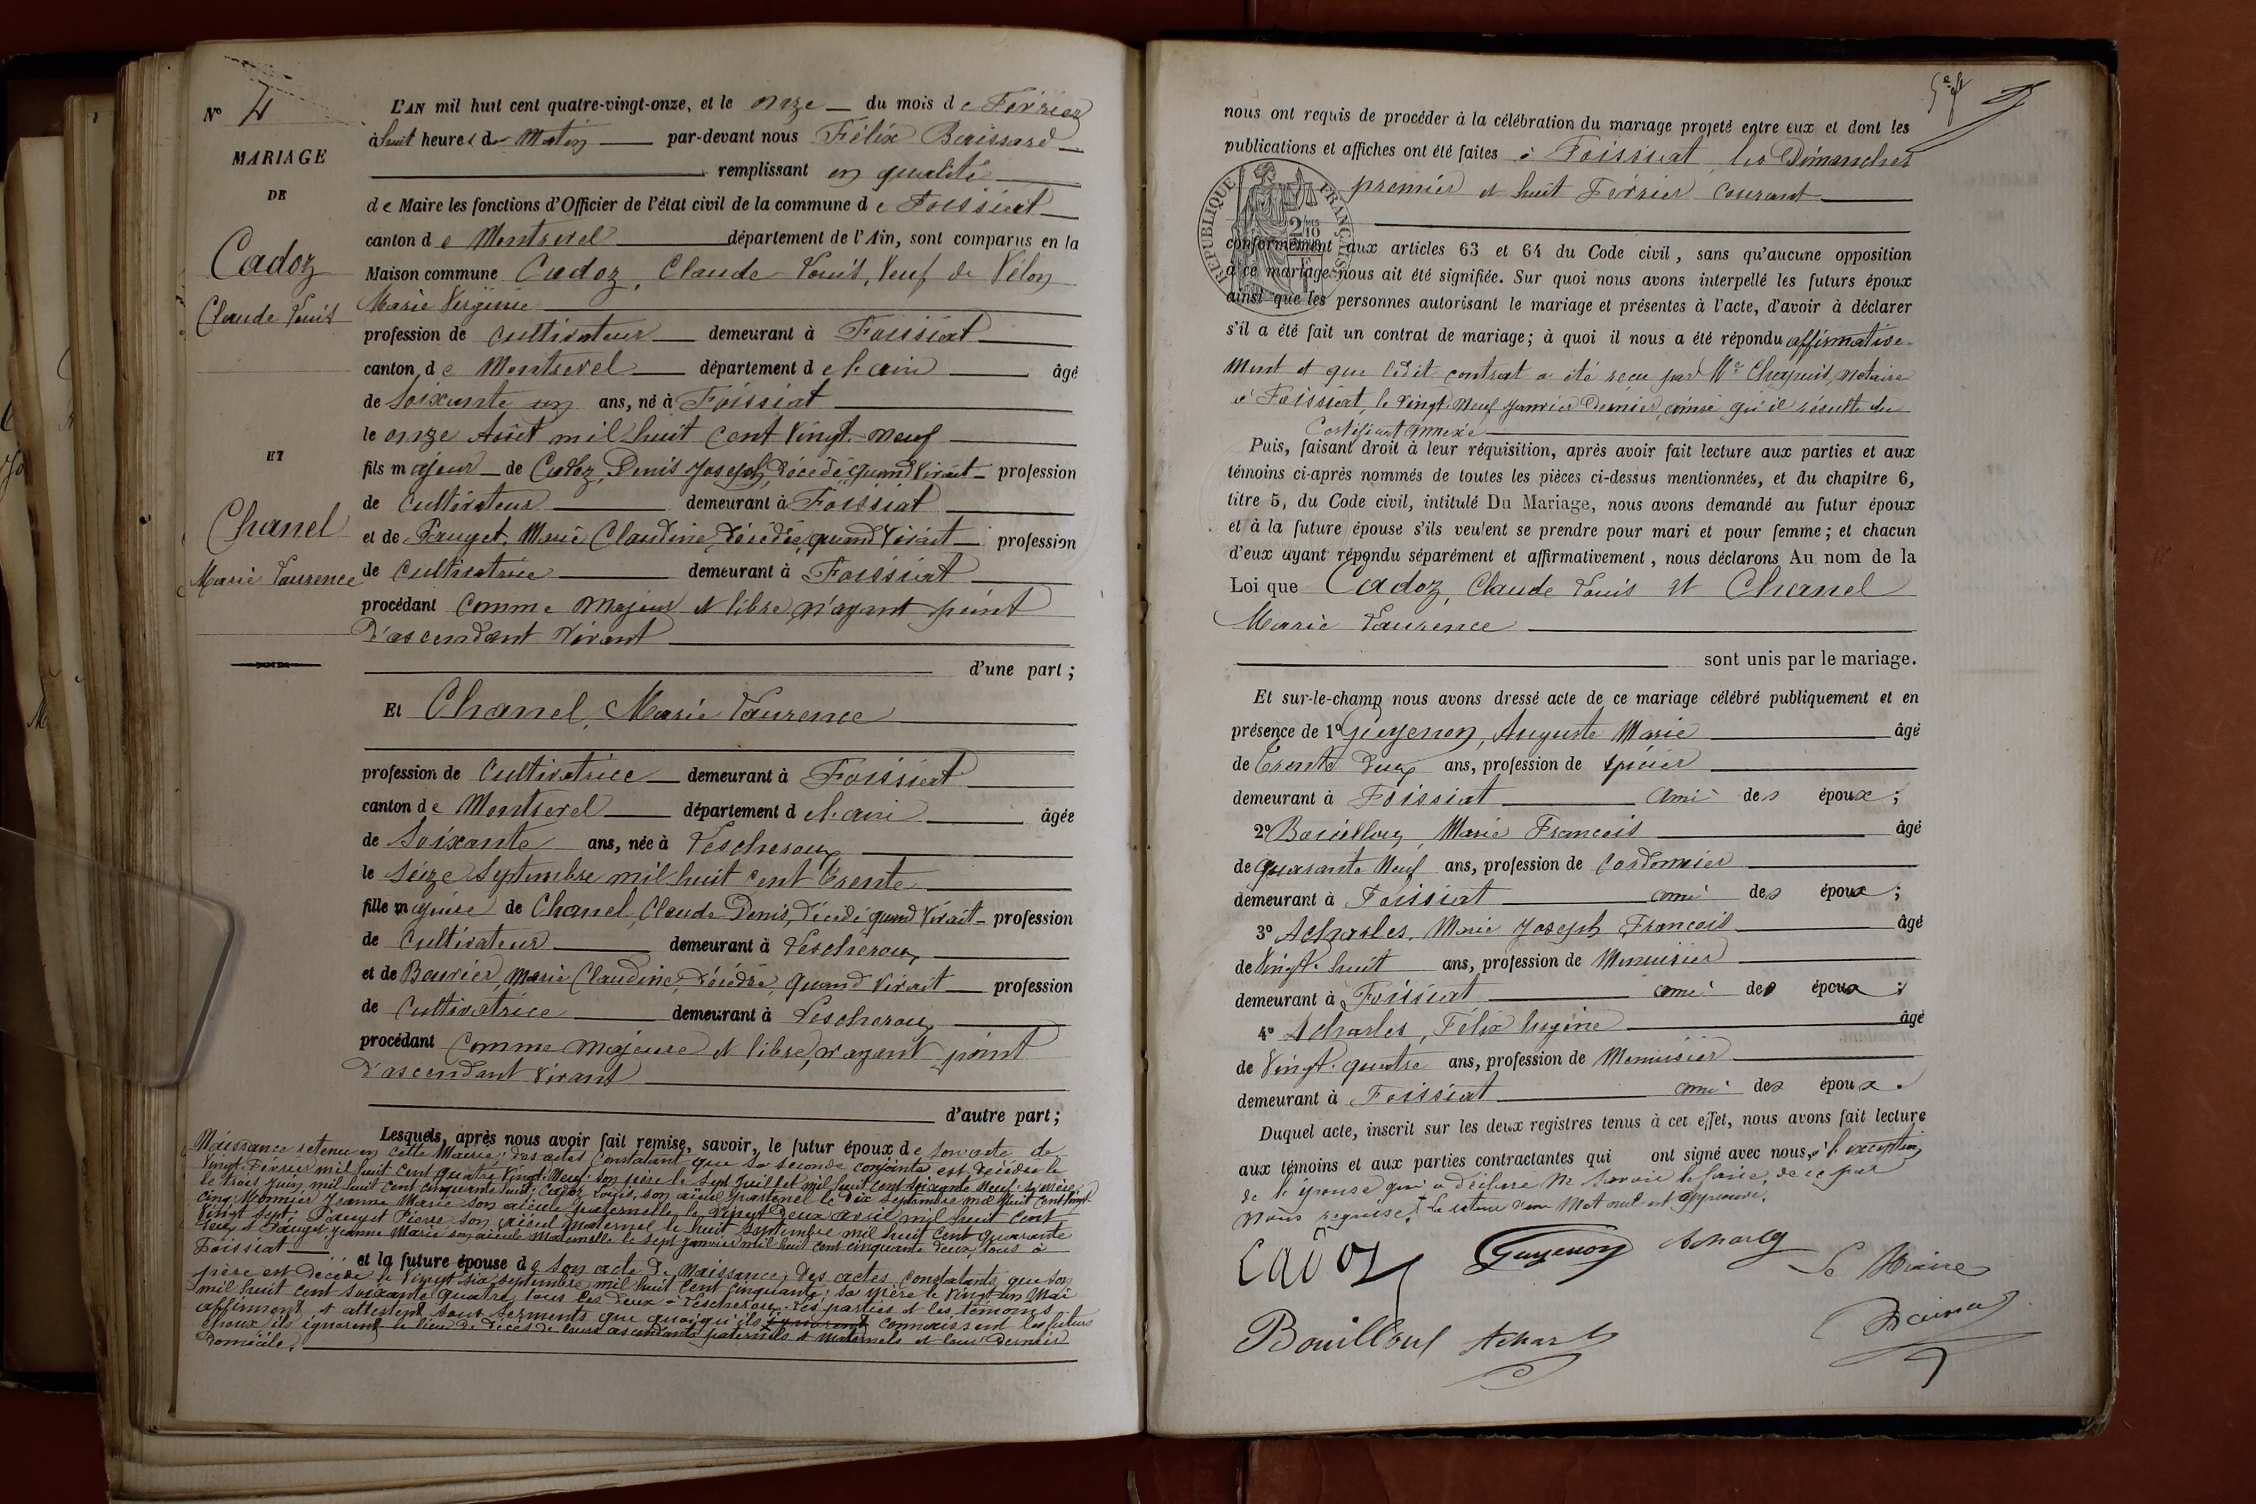 N° 4
MARIAGE
DE
Cadoz
Claude Louis
ET
Chanel
Marie Laurence
L'AN mil huit cent quatre-vingt-onze, et le onze du mois de Février
à huit heures du Matin par-devant nous Félix
remplissant en qualité
de Maire les fonctions d'Officier de l'état civil de la commune de Foissiat
canton de Montrevel département de l'Ain, sont comparus en la
Maison commune Cadoz, Claude Louis, Veuf de Vélon
Marie Virginie
profession de cultivateur demeurant à Foissiat
canton de Montrevel département de l'ain âgé
de Soixante un ans, né à Foissiat
le onze Août mil huit cent vingt-neuf
fils majeur de Cadoz, Denis Joseph, décédé, quand vivait profession
de Cultivateur demeurant à Foissiat
et de Pauget, Marie Claudine, décédée, quand vivait profession
de Cultivatrice demeurant à Foissiat
procédant comme majeur et libre, n'ayant point
d'ascendant vivant
d'une part ;
Et Chanel, Marie Laurence
profession de Cultivatrice demeurant à Foissiat
canton de Montrevel département de l'ain âgée
de Soixante ans, née à Lescheroux
le Seize Septembre mil huit cent trente
fille majeure de Chanel, Claude Denis, décédé quand vivait profession
de Cultivateur demeurant à Lescheroux
et de Bouvier, Marie Claudine, décédée, quand vivait profession
de Cultivatrice demeurant à Lescheroux
procédant comme majeure et libre, n'ayant point
d'ascendant vivant
d'autre part ;
Lesquels, après nous avoir fait remise, savoir, le futur époux de son acte de
Naissance retenu en cette Mairie, des actes constatant que sa seconde conjointe est décédée le
vingt Février mil huit cent quatre vingt neuf, son père le sept juillet mil huit cent soixante neuf, sa mère
le trois juin mil huit cent cinquante huit; Cadoz Louis, son aïeul paternel le dix Septembre mil huit cent vingt
cinq, Monnier Jeanne Marie son aïeule paternelle le vingt deux avril mil huit cent
vingt sept; Pauget Pierre son aïeul maternel le huit Septembre mil huit cent quarante
et Pauget Jeanne Marie son aïeule maternelle le sept janvier mil huit cent cinquante deux, tous à
Foissiat
et la future épouse de son acte de Naissance, des actes constatants que son
père est décédé le vingt six septembre mil huit cent cinquante; sa mère le vingt un Mai
mil huit cent soixante quatre, tous les deux à Lescheroux. Les parties et les témoins
affirment et attestent sous serments que quoiqu'ils connaissent les futurs
époux ils ignorent le lieu de décès de leurs ascendants paternels et maternels et leur dernier
domicile.
nous ont requis de procéder à la célébration du mariage projeté entre eux et dont les
publications et affiches ont été faites à Foissiat, les Dimanches
premier et huit Février courant
RÉPUBLIQUE FRANÇAISE
conformément aux articles 63 et 64 du Code civil, sans qu'aucune opposition
à ce mariage nous ait été signifiée. Sur quoi nous avons interpellé les futurs époux
ainsi que les personnes autorisant le mariage et présentes à l'acte, d'avoir à déclarer
s'il a été fait un contrat de mariage; à quoi il nous a été répondu affirmative-
ment et que ledit contrat a été reçu par Me Chapuis, notaire
à Foissiat, le vingt Neuf Janvier dernier, ainsi qu'il résulte du
Certificat annexé
Puis, faisant droit à leur réquisition, après avoir fait lecture aux parties et aux
témoins ci-après nommés de toutes les pièces ci-dessus mentionnées, et du chapitre 6,
titre 5, du Code civil, intitulé Du Mariage, nous avons demandé au futur époux
et à la future épouse s'ils veulent se prendre pour mari et pour femme; et chacun
d'eux ayant répondu séparément et affirmativement, nous déclarons Au nom de la
Loi que Cadoz, Claude Louis et Chanel
Marie Laurence
sont unis par le mariage.
Et sur-le-champ nous avons dressé acte de ce mariage célébré publiquement et en
présence de 1° Guyenon, Auguste Marie âgé
de trente deux ans, profession de épicier
demeurant à Foissiat ami des époux ;
2° Bouilloux, Marie François âgé
de quarante Neuf ans, profession de cordonnier
demeurant à Foissiat ami des époux ;
3° Acharles, Marie Joseph François âgé
de Vingt-huit ans, profession de Menuisier
demeurant à Foissiat ami des époux ;
4° Acharles, Félix Eugène âgé
de Vingt-quatre ans, profession de Menuisier
demeurant à Foissiat ami des époux.
Duquel acte, inscrit sur les deux registres tenus à cet effet, nous avons fait lecture
aux témoins et aux parties contractantes qui ont signé avec nous, à l'exception
de l'épouse qui a déclaré ne savoir le faire, de ce par
nous requise. La rature d'un Mot nul est approuvée.
Cadoz Guyenon Acharles Le Maire
Bouilloux Acharles